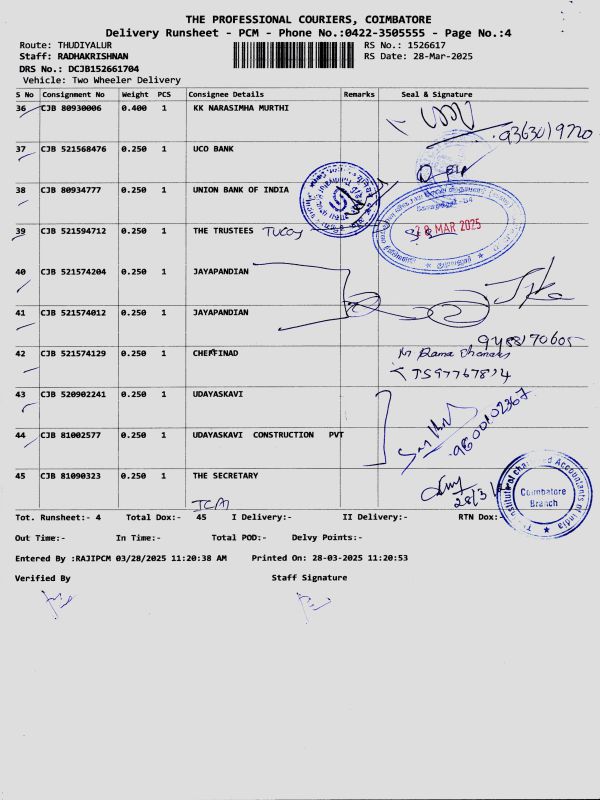 THE PROFESSIONAL COURIERS, COIMBATORE
Delivery Runsheet - PCM - Phone No.:0422-3505555 - Page No.:4
Route: THUDIYALUR RS No.: 1526617
Staff: RADHAKRISHNAN RS Date: 28-Mar-2025
DRS No.: DCJB152661704
Vehicle: Two Wheeler Delivery
S No Consignment No Weight PCS Consignee Details Remarks Seal & Signature
36 CJB 80930006 0.400 1 KK NARASIMHA MURTHI
9363019720
37 CJB 521568476 0.250 1 UCO BANK
38 CJB 80934777 0.250 1 UNION BANK OF INDIA
39 CJB 521594712 0.250 1 THE TRUSTEES
MAR 2025
40 CJB 521574204 0.250 1 JAYAPANDIAN
41 CJB 521574012 0.250 1 JAYAPANDIAN
42 CJB 521574129 0.250 1 CHETTINAD
43 CJB 520902241 0.250 1 UDAYASKAVI
44 CJB 81002577 0.250 1 UDAYASKAVI CONSTRUCTION PVT
9600102367
45 CJB 81090323 0.250 1 THE SECRETARY
28/3
ICAI
Coimbatore
Branch
Tot. Runsheet:- 4 Total Dox:- 45 I Delivery:- II Delivery:- RTN Dox:-
Out Time:- In Time:- Total POD:- Delvy Points:-
Entered By :RAJIPCM 03/28/2025 11:20:38 AM Printed On: 28-03-2025 11:20:53
Verified By Staff Signature